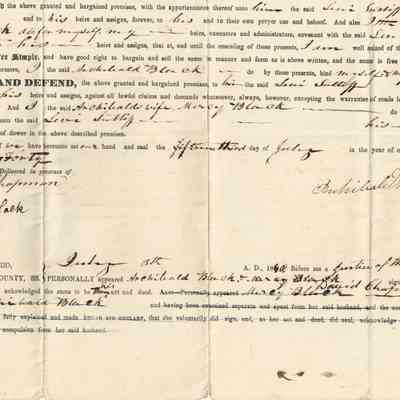 the above granted and bargained premises, with the appurtenances thereunto belonging, unto him the said Levi
and to his heirs and assigns, forever, to his and to their own proper use and behoof. And also I the
do for myself my heirs, executors and administrators, covenant with the said Levi
his heirs and assigns, that at, and until the ensealing of these presents, I am well seized of the
Fee Simple, and have good right to bargain and sell the same in manner and form as is above written, and the same is free
I the said Archibald Black do by these presents, bind myself & m
AND DEFEND, the above granted and bargained premises, to him the said Levi
his heirs and assigns, against all lawful claims and demands whatsoever, always, however, excepting the warrantee of roads l
And I the said Archibalds wife Mercy Black do
unto the said Levi his
of dower in the above described premises.
we have hereunto set our hand and seal the fifteenth day of July in the year of o
forty
Delivered in presence of
hapman
Archibald
lack
July 15th A. D., 1840 Before me a Justice of th
COUNTY, SS. PERSONALLY appeared Archibald Black & Mercy Black
David Chap
acknowledged the same to be their act and deed. Also Personally appeared Mercy Black
hibald Black and having been examined separate and apart from her said husband, and the con
fully explained and made known, did declare, that she voluntarily did sign, seal, as her act and deed, did seal, acknowledge
compulsion from her said husband.